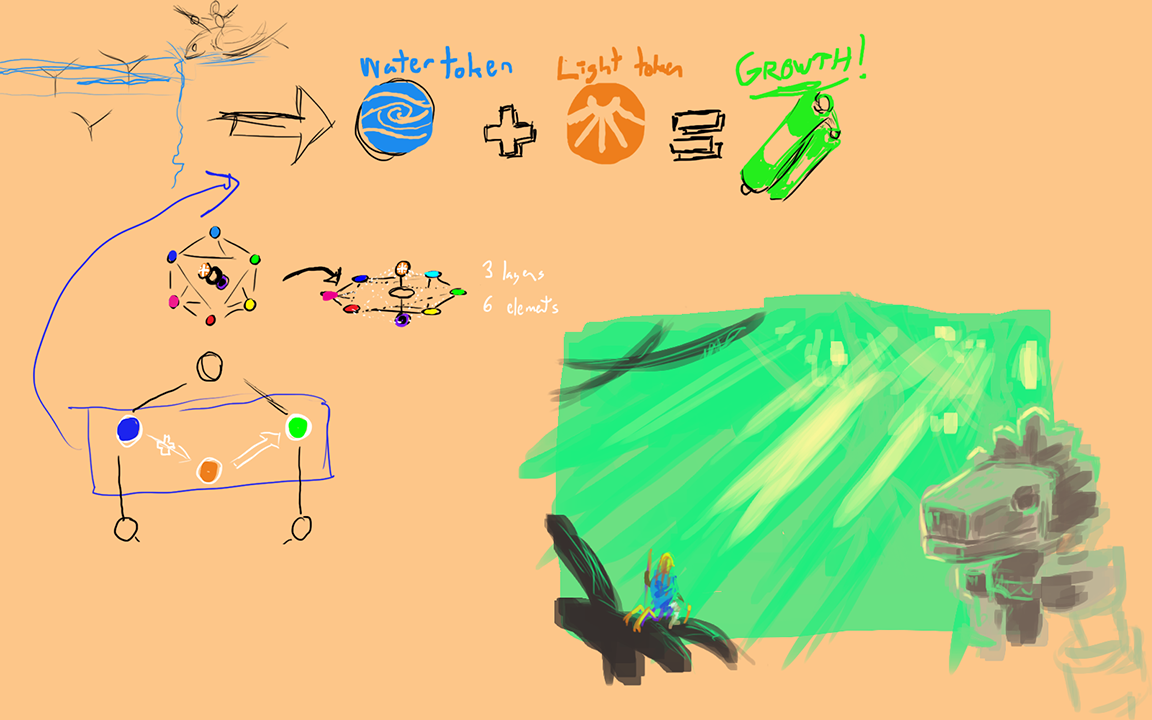 Water token
Light token
GROWTH!
3 layers
6 elements